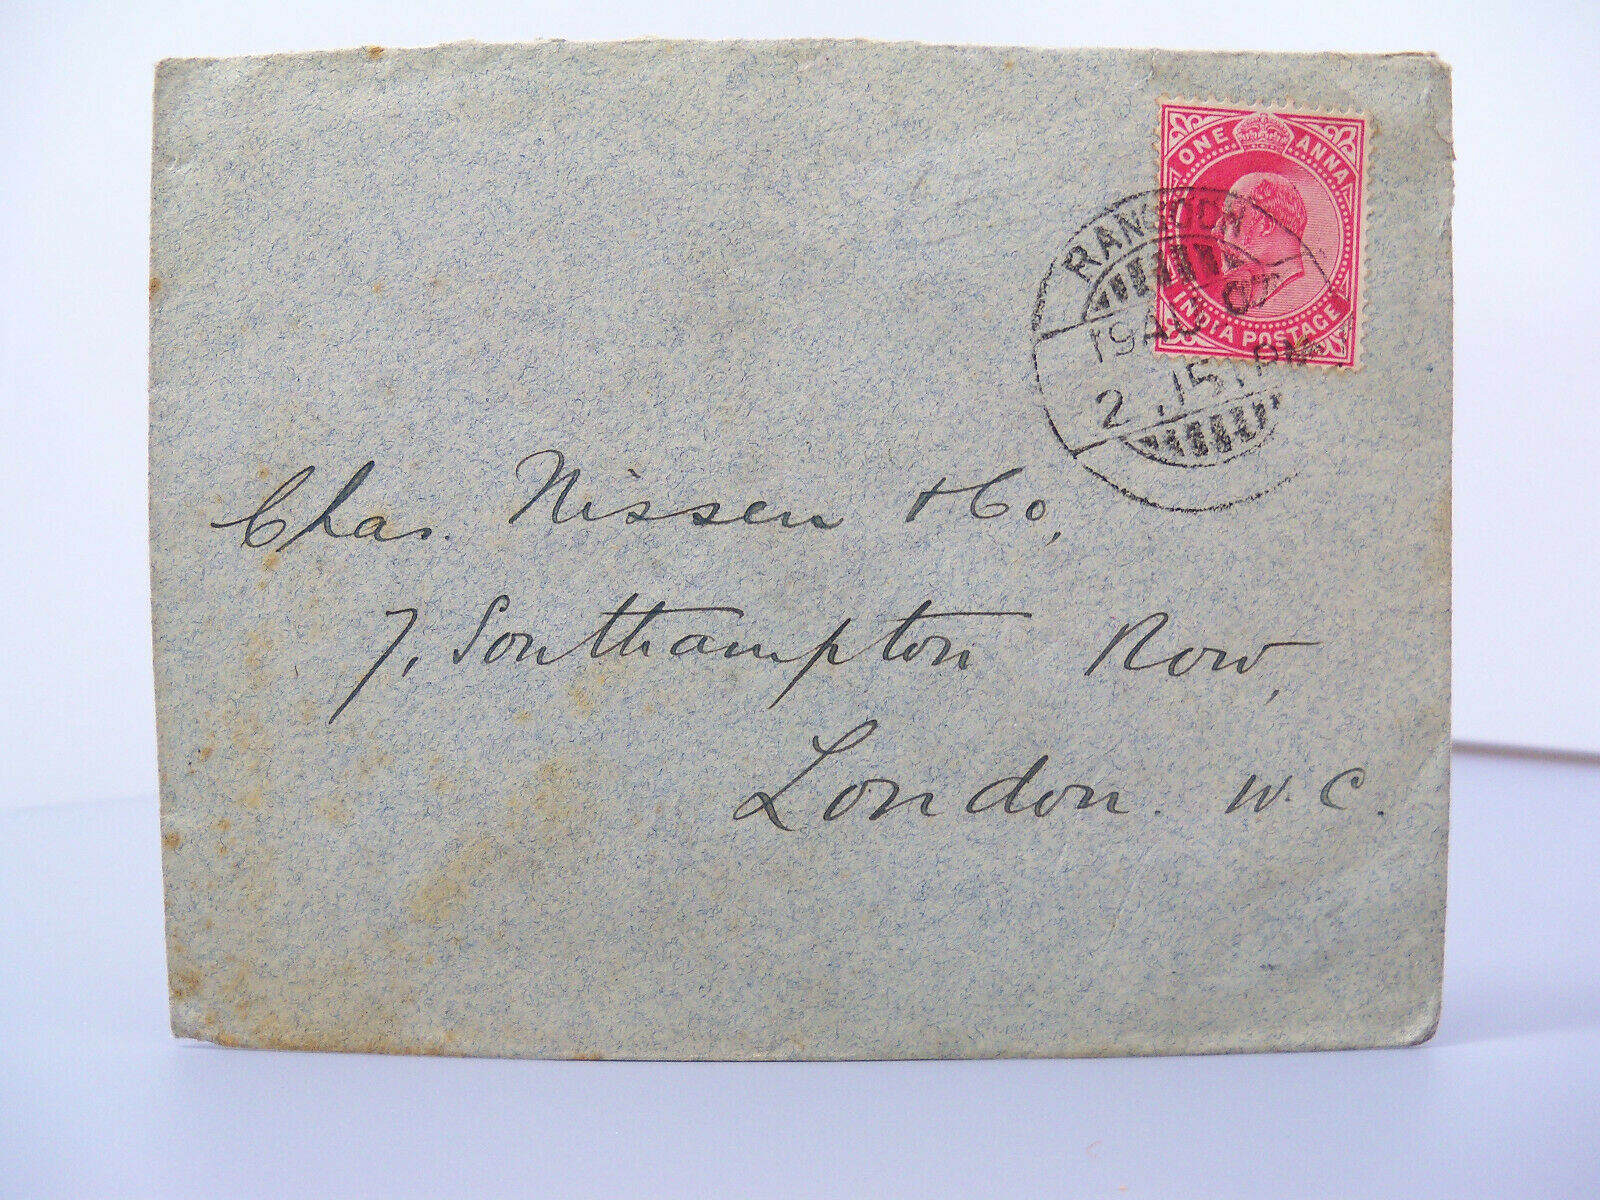 ONE ANNA
INDIA POSTAGE
RANGOON
19 AU 07
2.15 PM
Chas. Nissen & Co,
7, Southampton Row,
London. W.C.